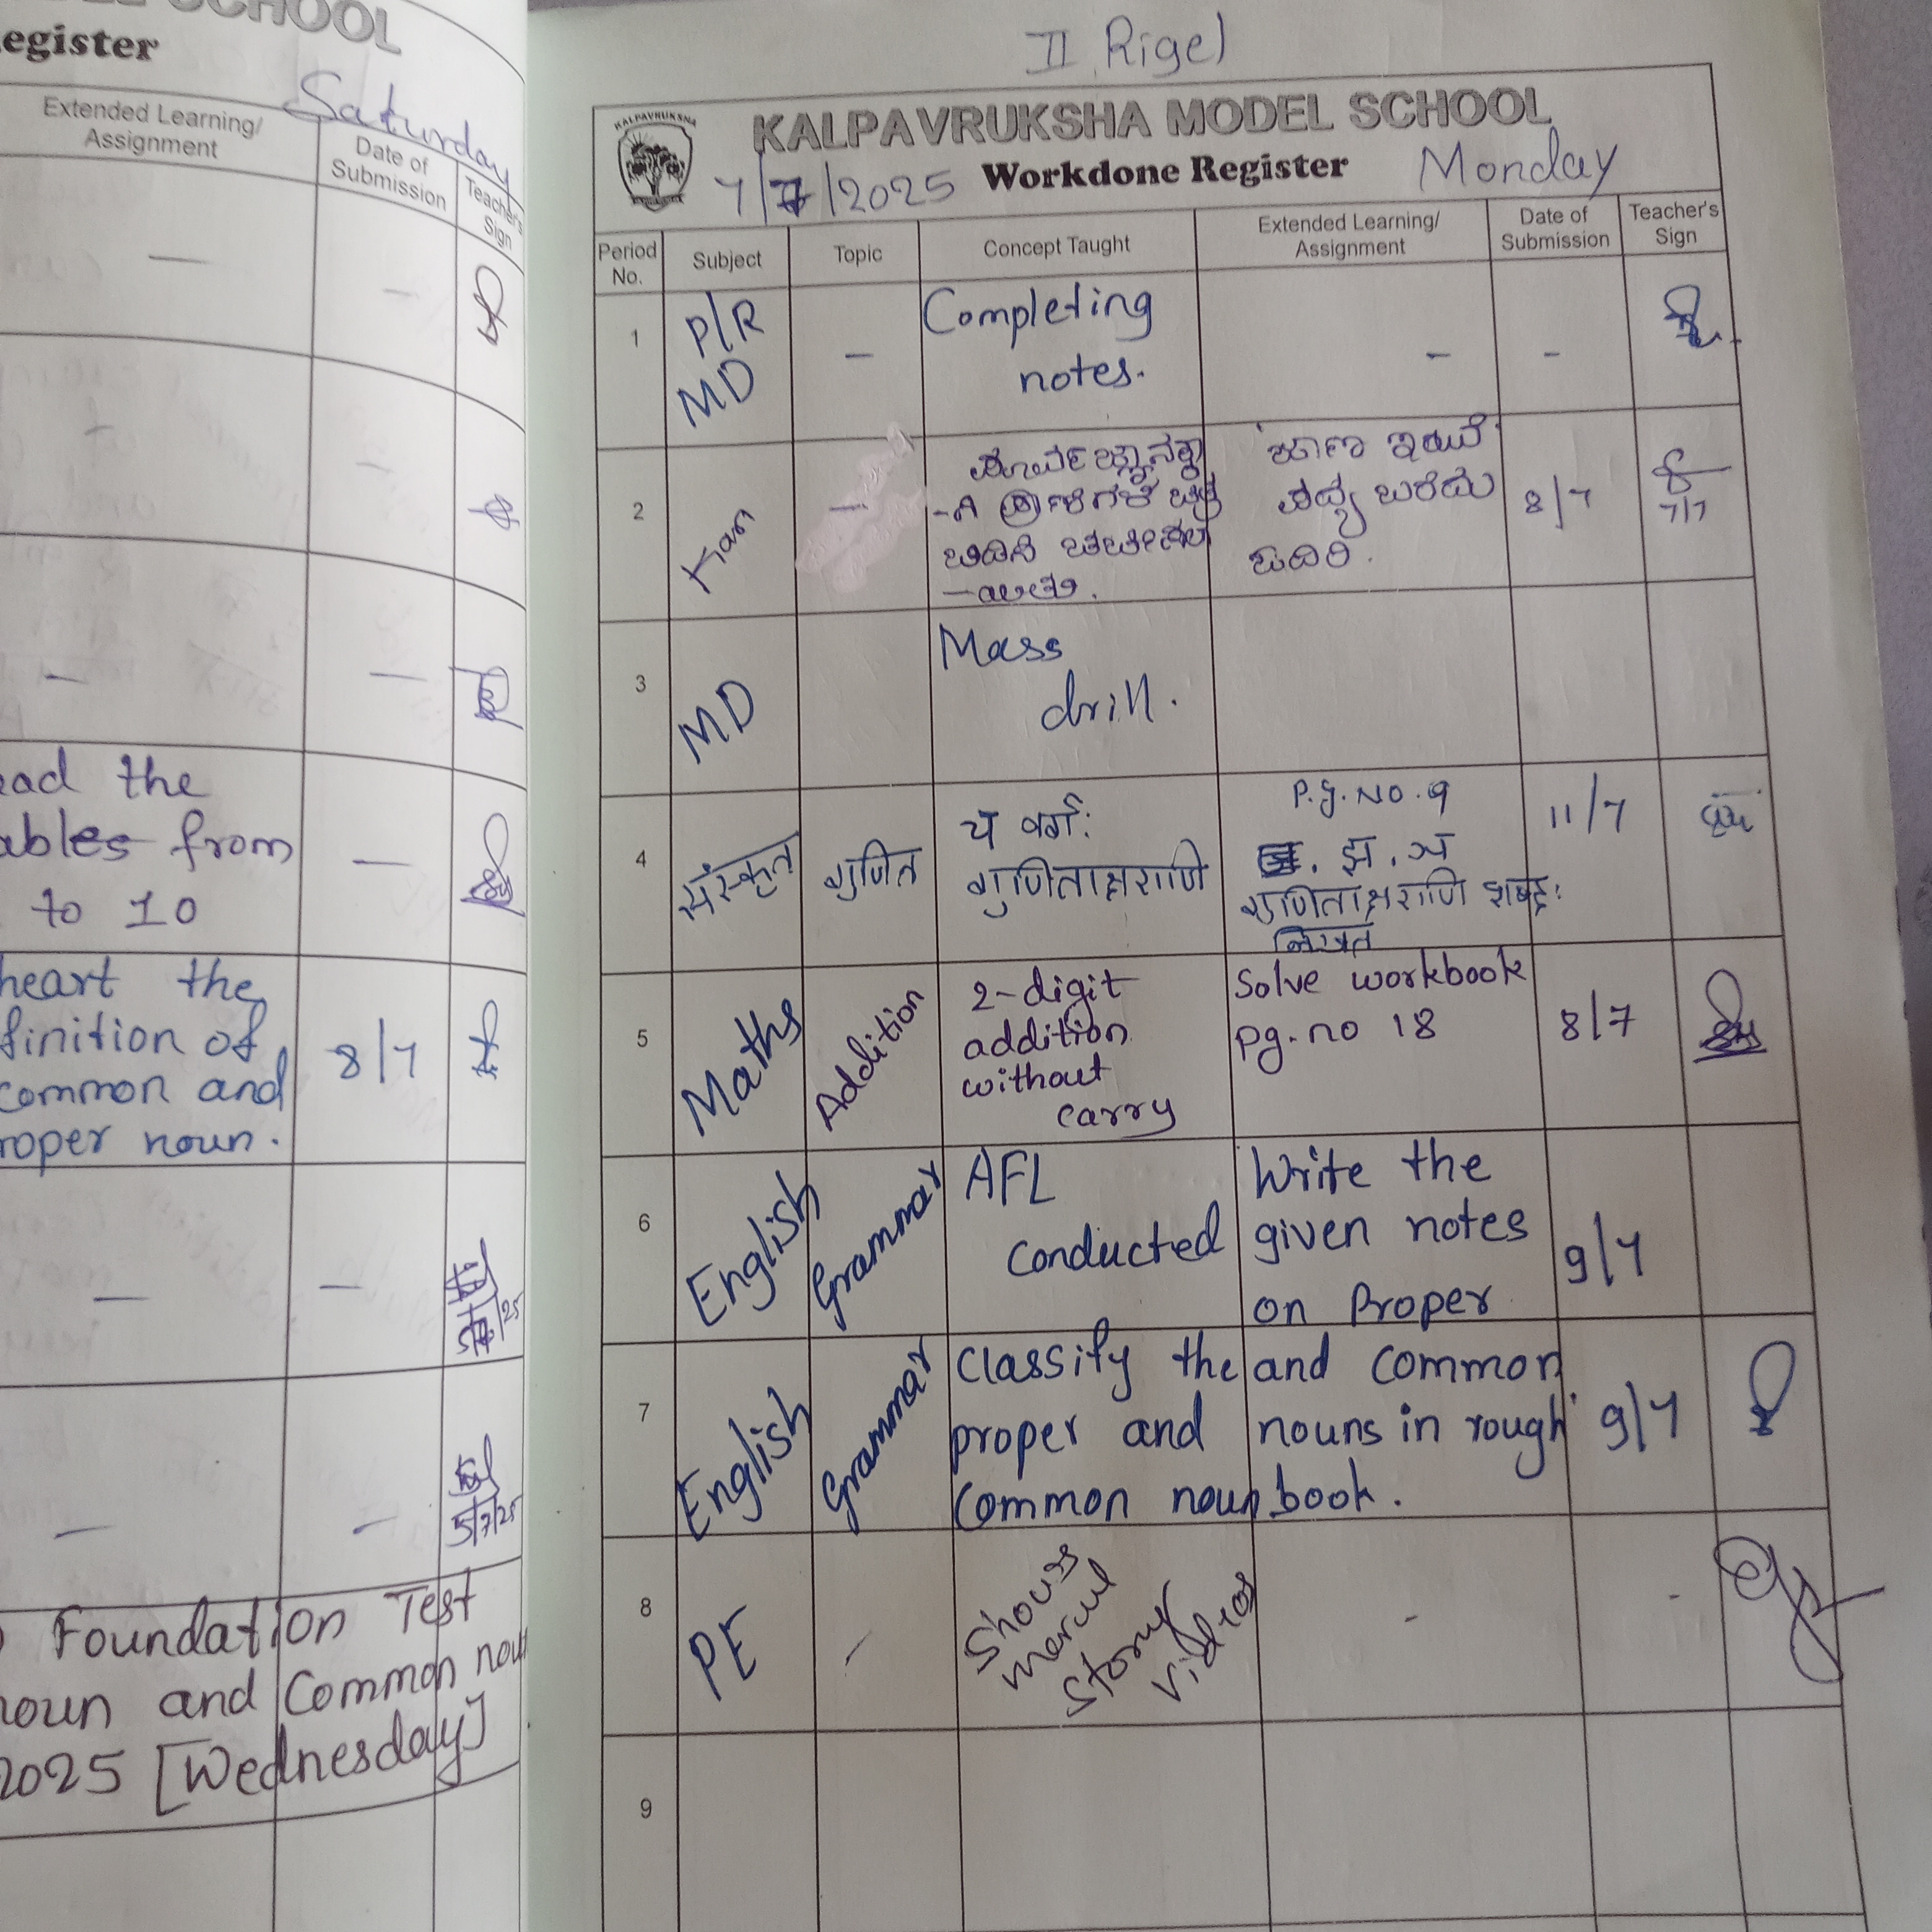 SCHOOL
Register
Saturday
Extended Learning/
Assignment
Date of
Submission
Teacher's
Sign
ead the
ables from
to 10
heart the
finition of
common and
roper noun.
8/7
5/7/25
5/7/25
Foundation Test
noun and Common noun
2025 [Wednesday]
II Rigel
KALPAVRUKSHA
KALPAVRUKSHA MODEL SCHOOL
7/7/2025 Workdone Register Monday
Period No. Subject Topic Concept Taught Extended Learning/ Assignment Date of Submission Teacher's Sign
1 P/R MD – Completing notes. – –
2 Kan –
ಪದ್ಯ ಬರೆದು
8/7
7/7
3 MD Mass drill.
4 संस्कृत गुणित
च वर्गः
गुणिताक्षराणि
P.g. No. 9
झ. ञ
गुणिताक्षराणि शब्दः
लिखत
11/7
5 Maths Addition
2-digit
addition
without
carry
Solve workbook
pg. no 18
8/7
6 English Grammar
AFL
conducted
Write the
given notes
on Proper
9/7
7 English Grammar
Classify the
proper and
common noun
and common
nouns in rough
book.
9/7
8 PE –
Shows
moral
story
videos
– -
9